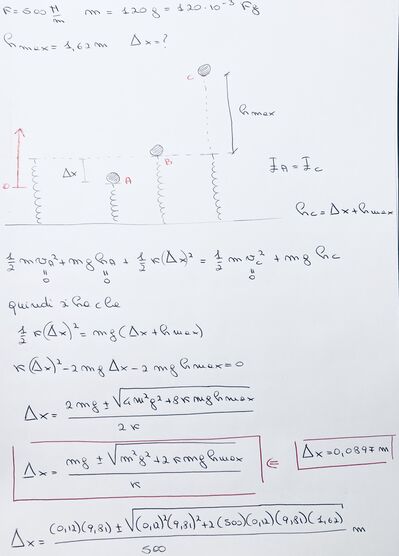 K=500 N/m m=120g=120·10⁻³ Kg
hmax=1,62m Δx=?
C
hmax
B
Δx
A
0
EA=EC
hC=Δx+hmax
½mvA²+mghA+½K(Δx)²=½mvC²+mghC
0 0 0
quindi si ha che
½K(Δx)²=mg(Δx+hmax)
K(Δx)²-2mgΔx-2mghmax=0
Δx=(2mg±√(4m²g²+8Kmghmax))/2K
Δx=(mg±√(m²g²+2Kmghmax))/K ⇐ Δx=0,0897m
Δx=((0,12)(9,81)±√((0,12)²(9,81)²+2(500)(0,12)(9,81)(1,62)))/500 m